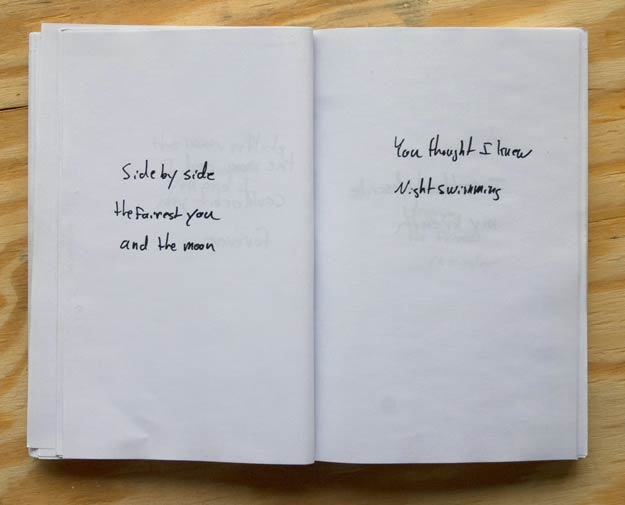 Side by side
the fairest you
and the moon
You thought I knew
Nightswimming